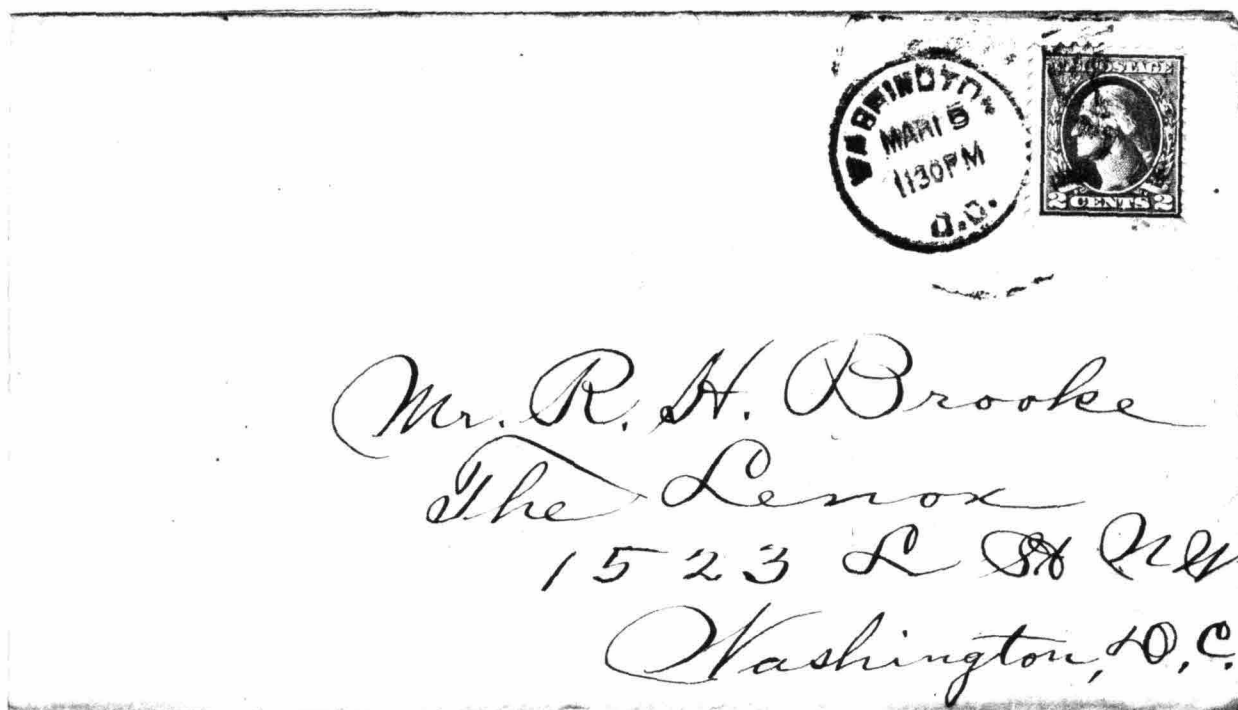 WASHINGTON
MAR 15
1130PM
D.C.
U.S. POSTAGE
2 CENTS 2
Mr. R. H. Brooke
The Lenox
1523 L St NW
Washington, D.C.